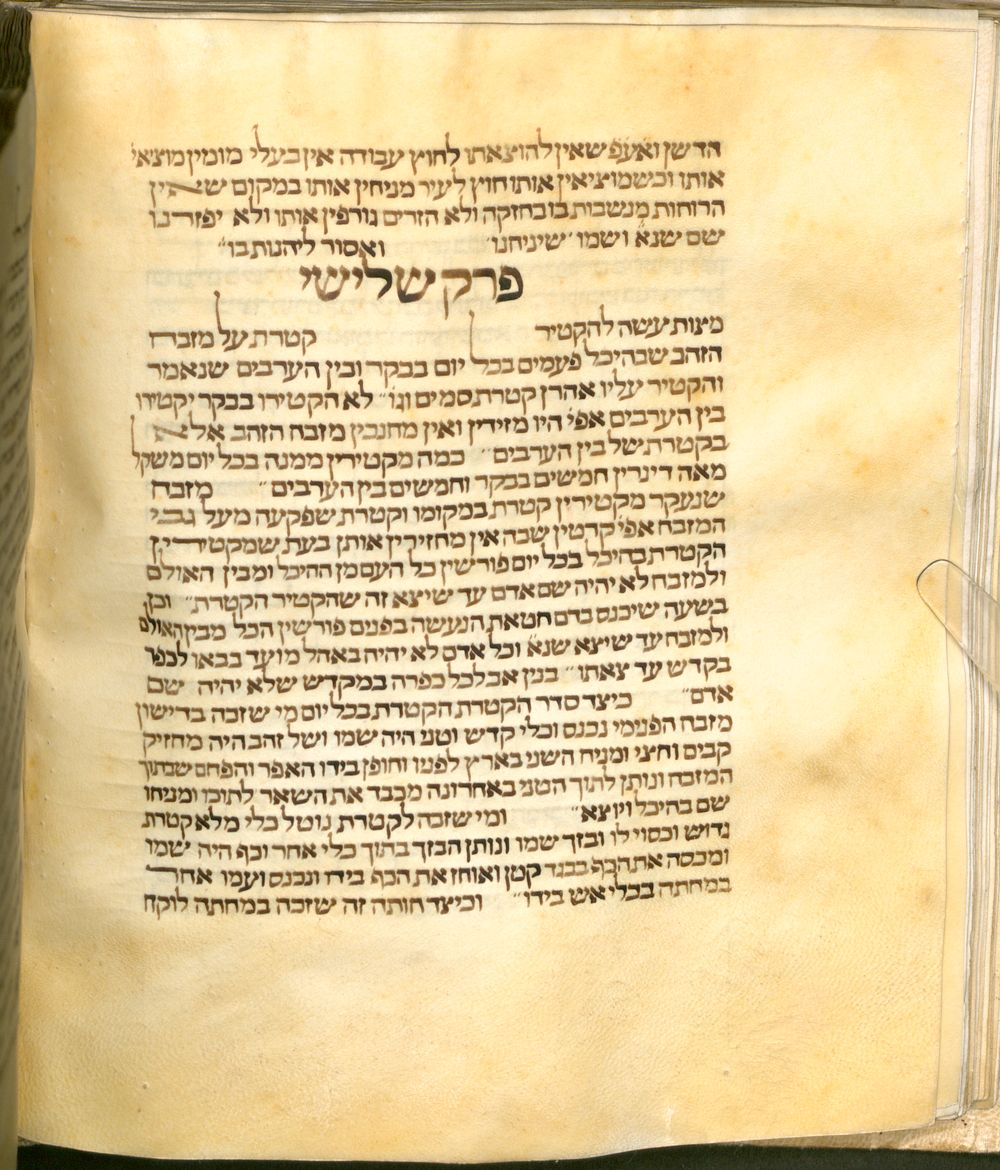 הדשן ואע״פ שאין להוצאתו לחוץ עבודה אין בעלי מומין מוציאי
אותו וכשמוציאין אותו חוץ לעיר מניחין אותו במקום שאין
הרוחות מנשבות בו בחזקה ולא הזרים גורפין אותו ולא יפזרנו
שם שנא׳ ושמו שיניחנו ואסור ליהנות בו״
פרק שלישי
מצות עשה להקטיר קטרת על מזבח
הזהב שבהיכל פעמים בכל יום בבקר ובין הערבים שנאמר
והקטיר עליו אהרן קטרת סמים וגו׳״ לא הקטירו בבקר יקטירו
בין הערבים אפי׳ היו מזידין ואין מחנכין מזבח הזהב אלא
בקטרת של בין הערבים״ כמה מקטירין ממנה בכל יום משקל
מאה דינרין חמשים בבקר וחמשים בין הערבים״ מזבח
שנעקר מקטירין קטרת במקומו וקטרת שפקעה מעל גבי
המזבח אפי׳ קרטין שבה אין מחזירין אותן בעת שמקטירין
הקטרת בהיכל בכל יום פורשין כל העם מן ההיכל ומבין האולם
ולמזבח לא יהיה שם אדם עד שיצא זה שהקטיר הקטרת״ וכן
בשעה שיכנס בדם חטאת הנעשה בפנים פורשין הכל מבין האולם
ולמזבח עד שיצא שנא׳ וכל אדם לא יהיה באהל מועד בבאו לכפר
בקדש עד צאתו״ בנין אב לכל כפרה במקדש שלא יהיה שם
אדם״ כיצד סדר הקטרת הקטרת בכל יום מי שזכה בדישון
מזבח הפנימי נכנס וכלי קדש וטני היה שמו ושל זהב היה מחזיק
קבים וחצי ומניח השני בארץ לפניו וחופן בידו האפר והפחם שבתוך
המזבח ונותן לתוך הטני באחרונה מכבד את השאר לתוכו ומניחו
שם בהיכל ויוצא״ ומי שזכה לקטרת נוטל כלי מלא קטרת
גדוש וכסוי לו ובזך שמו ונותן הבזך בתוך כלי אחר וכף היה שמו
ומכסה את הכף בבגד קטן ואוחז את הכף בידו ונכנס ועמו אחר
במחתה בכלי אש בידו״ וכיצד חותה זה שזכה במחתה לוקח